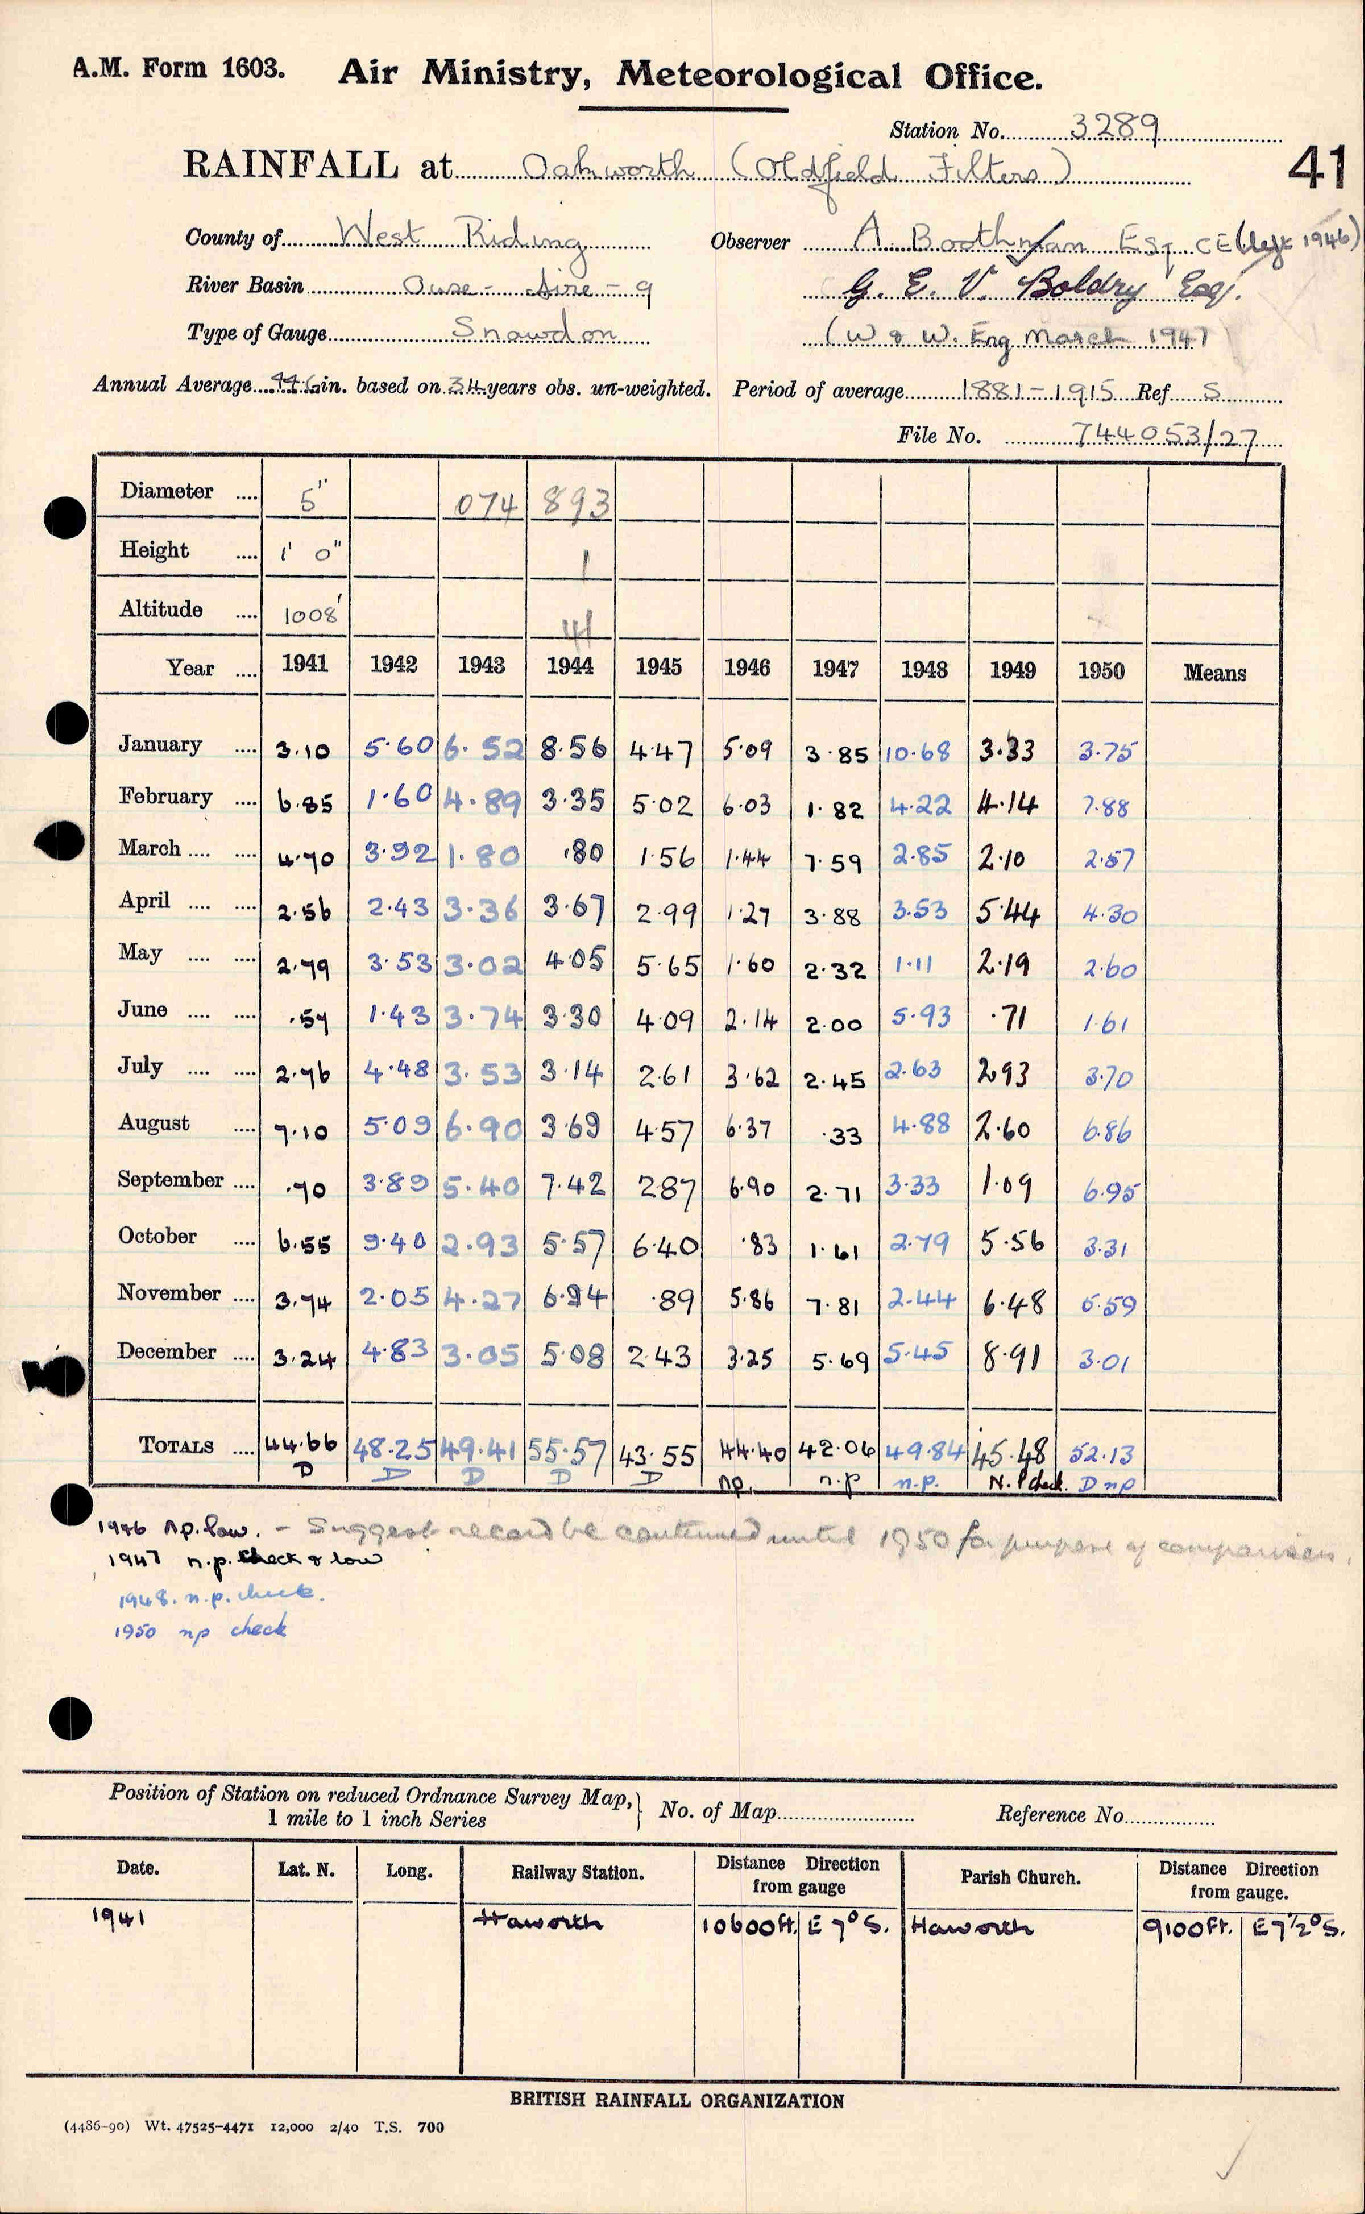 A.M. Form 1603. Air Ministry, Meteorological Office.
Station No. 3289
41
RAINFALL at Oakworth (Oldfield Filters)
County of West Riding Observer A. Boothman Esq. CE (left 1946)
River Basin Ouse - Aire - 9 G. E. V. Boldry Esq.
Type of Gauge Snowdon (W & W. Eng March 1947)
Annual Average 44.6 in. based on 34 years obs. un-weighted. Period of average 1881-1915 Ref S
File No. 744053/27
Diameter .... 5" 074 893
Height .... 1' 0" 1
Altitude .... 1008' 41
Year .... 1941 1942 1943 1944 1945 1946 1947 1948 1949 1950 Means
January .... 3.10 5.60 6.52 8.56 4.47 5.09 3.85 10.68 3.33 3.75
February .... 6.85 1.60 4.89 3.35 5.02 6.03 1.82 4.22 4.14 7.88
March .... .... 4.70 3.92 1.80 .80 1.56 1.44 7.59 2.85 2.10 2.57
April .... .... 2.56 2.43 3.36 3.67 2.99 1.27 3.88 3.53 5.44 4.30
May .... .... 2.79 3.53 3.02 4.05 5.65 1.60 2.32 1.11 2.19 2.60
June .... .... .57 1.43 3.74 3.30 4.09 2.14 2.00 5.93 .71 1.61
July .... .... 2.76 4.48 3.53 3.14 2.61 3.62 2.45 2.63 2.93 3.70
August .... 7.10 5.09 6.90 3.69 4.57 6.37 .33 4.88 2.60 6.86
September .... .70 3.89 5.40 7.42 2.87 6.90 2.71 3.33 1.09 6.95
October .... 6.55 9.40 2.93 5.57 6.40 .83 1.61 2.79 5.56 3.31
November .... 3.74 2.05 4.27 6.94 .89 5.86 7.81 2.44 6.48 5.59
December .... 3.24 4.83 3.05 5.08 2.43 3.25 5.69 5.45 8.91 3.01
TOTALS .... 44.66 48.25 49.41 55.57 43.55 44.40 42.06 49.84 45.48 52.13
D D D D D np. n.p n.p. N.P check. D np
1946 np. low. - Suggest record be continued until 1950 for purpose of comparison.
1947 n.p. check & low
1948. n.p. check.
1950 np check
Position of Station on reduced Ordnance Survey Map, 1 mile to 1 inch Series } No. of Map Reference No.
Date. Lat. N. Long. Railway Station. Distance Direction from gauge Parish Church. Distance Direction from gauge.
1941 Haworth 10600ft. E 7° S. Haworth 9100ft. E 7½° S.
BRITISH RAINFALL ORGANIZATION
(4486-90) Wt. 47525-4471 12,000 2/40 T.S. 700